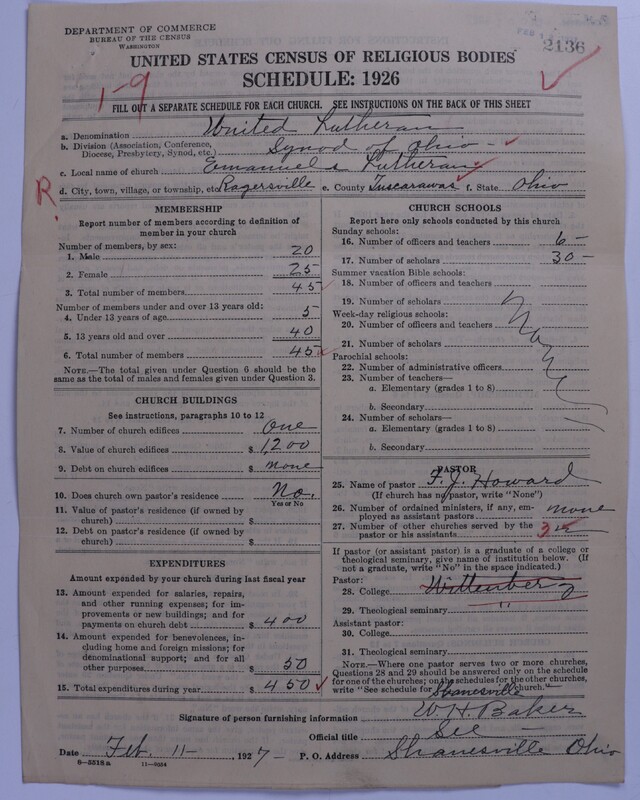 DEPARTMENT OF COMMERCE
BUREAU OF THE CENSUS
WASHINGTON
2136
UNITED STATES CENSUS OF RELIGIOUS BODIES
SCHEDULE: 1926
1-9
FILL OUT A SEPARATE SCHEDULE FOR EACH CHURCH. SEE INSTRUCTIONS ON THE BACK OF THIS SHEET
a. Denomination United Lutheran
b. Division (Association, Conference, Diocese, Presbytery, Synod, etc.) Synod of Ohio
c. Local name of church Emanuels Lutheran
R. d. City, town, village, or township, etc. Ragersville e. County Tuscarawas f. State Ohio
MEMBERSHIP
Report number of members according to definition of
member in your church
Number of members, by sex:
1. Male 20
2. Female 25
3. Total number of members 45
Number of members under and over 13 years old:
4. Under 13 years of age 5
5. 13 years old and over 40
6. Total number of members 45
NOTE.—The total given under Question 6 should be
the same as the total of males and females given under Question 3.
CHURCH BUILDINGS
See instructions, paragraphs 10 to 12
7. Number of church edifices One
8. Value of church edifices $ 1,200
9. Debt on church edifices $ none
10. Does church own pastor's residence No.
Yes or No
11. Value of pastor's residence (if owned by
church) $
12. Debt on pastor's residence (if owned by
church) $
EXPENDITURES
Amount expended by your church during last fiscal year
13. Amount expended for salaries, repairs,
and other running expenses; for im-
provements or new buildings; and for
payments on church debt $ 400
14. Amount expended for benevolences, in-
cluding home and foreign missions; for
denominational support; and for all
other purposes $ 50
15. Total expenditures during year $ 450
CHURCH SCHOOLS
Report here only schools conducted by this church
Sunday schools:
16. Number of officers and teachers 6
17. Number of scholars 30
Summer vacation Bible schools:
18. Number of officers and teachers
19. Number of scholars
Week-day religious schools:
20. Number of officers and teachers
21. Number of scholars
Parochial schools:
22. Number of administrative officers
23. Number of teachers—
a. Elementary (grades 1 to 8)
b. Secondary
24. Number of scholars—
a. Elementary (grades 1 to 8)
b. Secondary
None
PASTOR
25. Name of pastor F. J. Howard
(If church has no pastor, write "None")
26. Number of ordained ministers, if any, em-
ployed as assistant pastors none
27. Number of other churches served by the
pastor or his assistants 3
If pastor (or assistant pastor) is a graduate of a college or
theological seminary, give name of institution below. (If
not a graduate, write "No" in the space indicated.)
Pastor:
28. College Wittenberg
29. Theological seminary "
Assistant pastor:
30. College
31. Theological seminary
NOTE.—Where one pastor serves two or more churches,
Questions 28 and 29 should be answered only on the schedule
for one of the churches; on the schedules for the other churches,
write "See schedule for Shanesville church."
Signature of person furnishing information W H Baker
Official title Sec
Date Feb. 11- 1927 P. O. Address Shanesville Ohio
6-5518a 11-9524